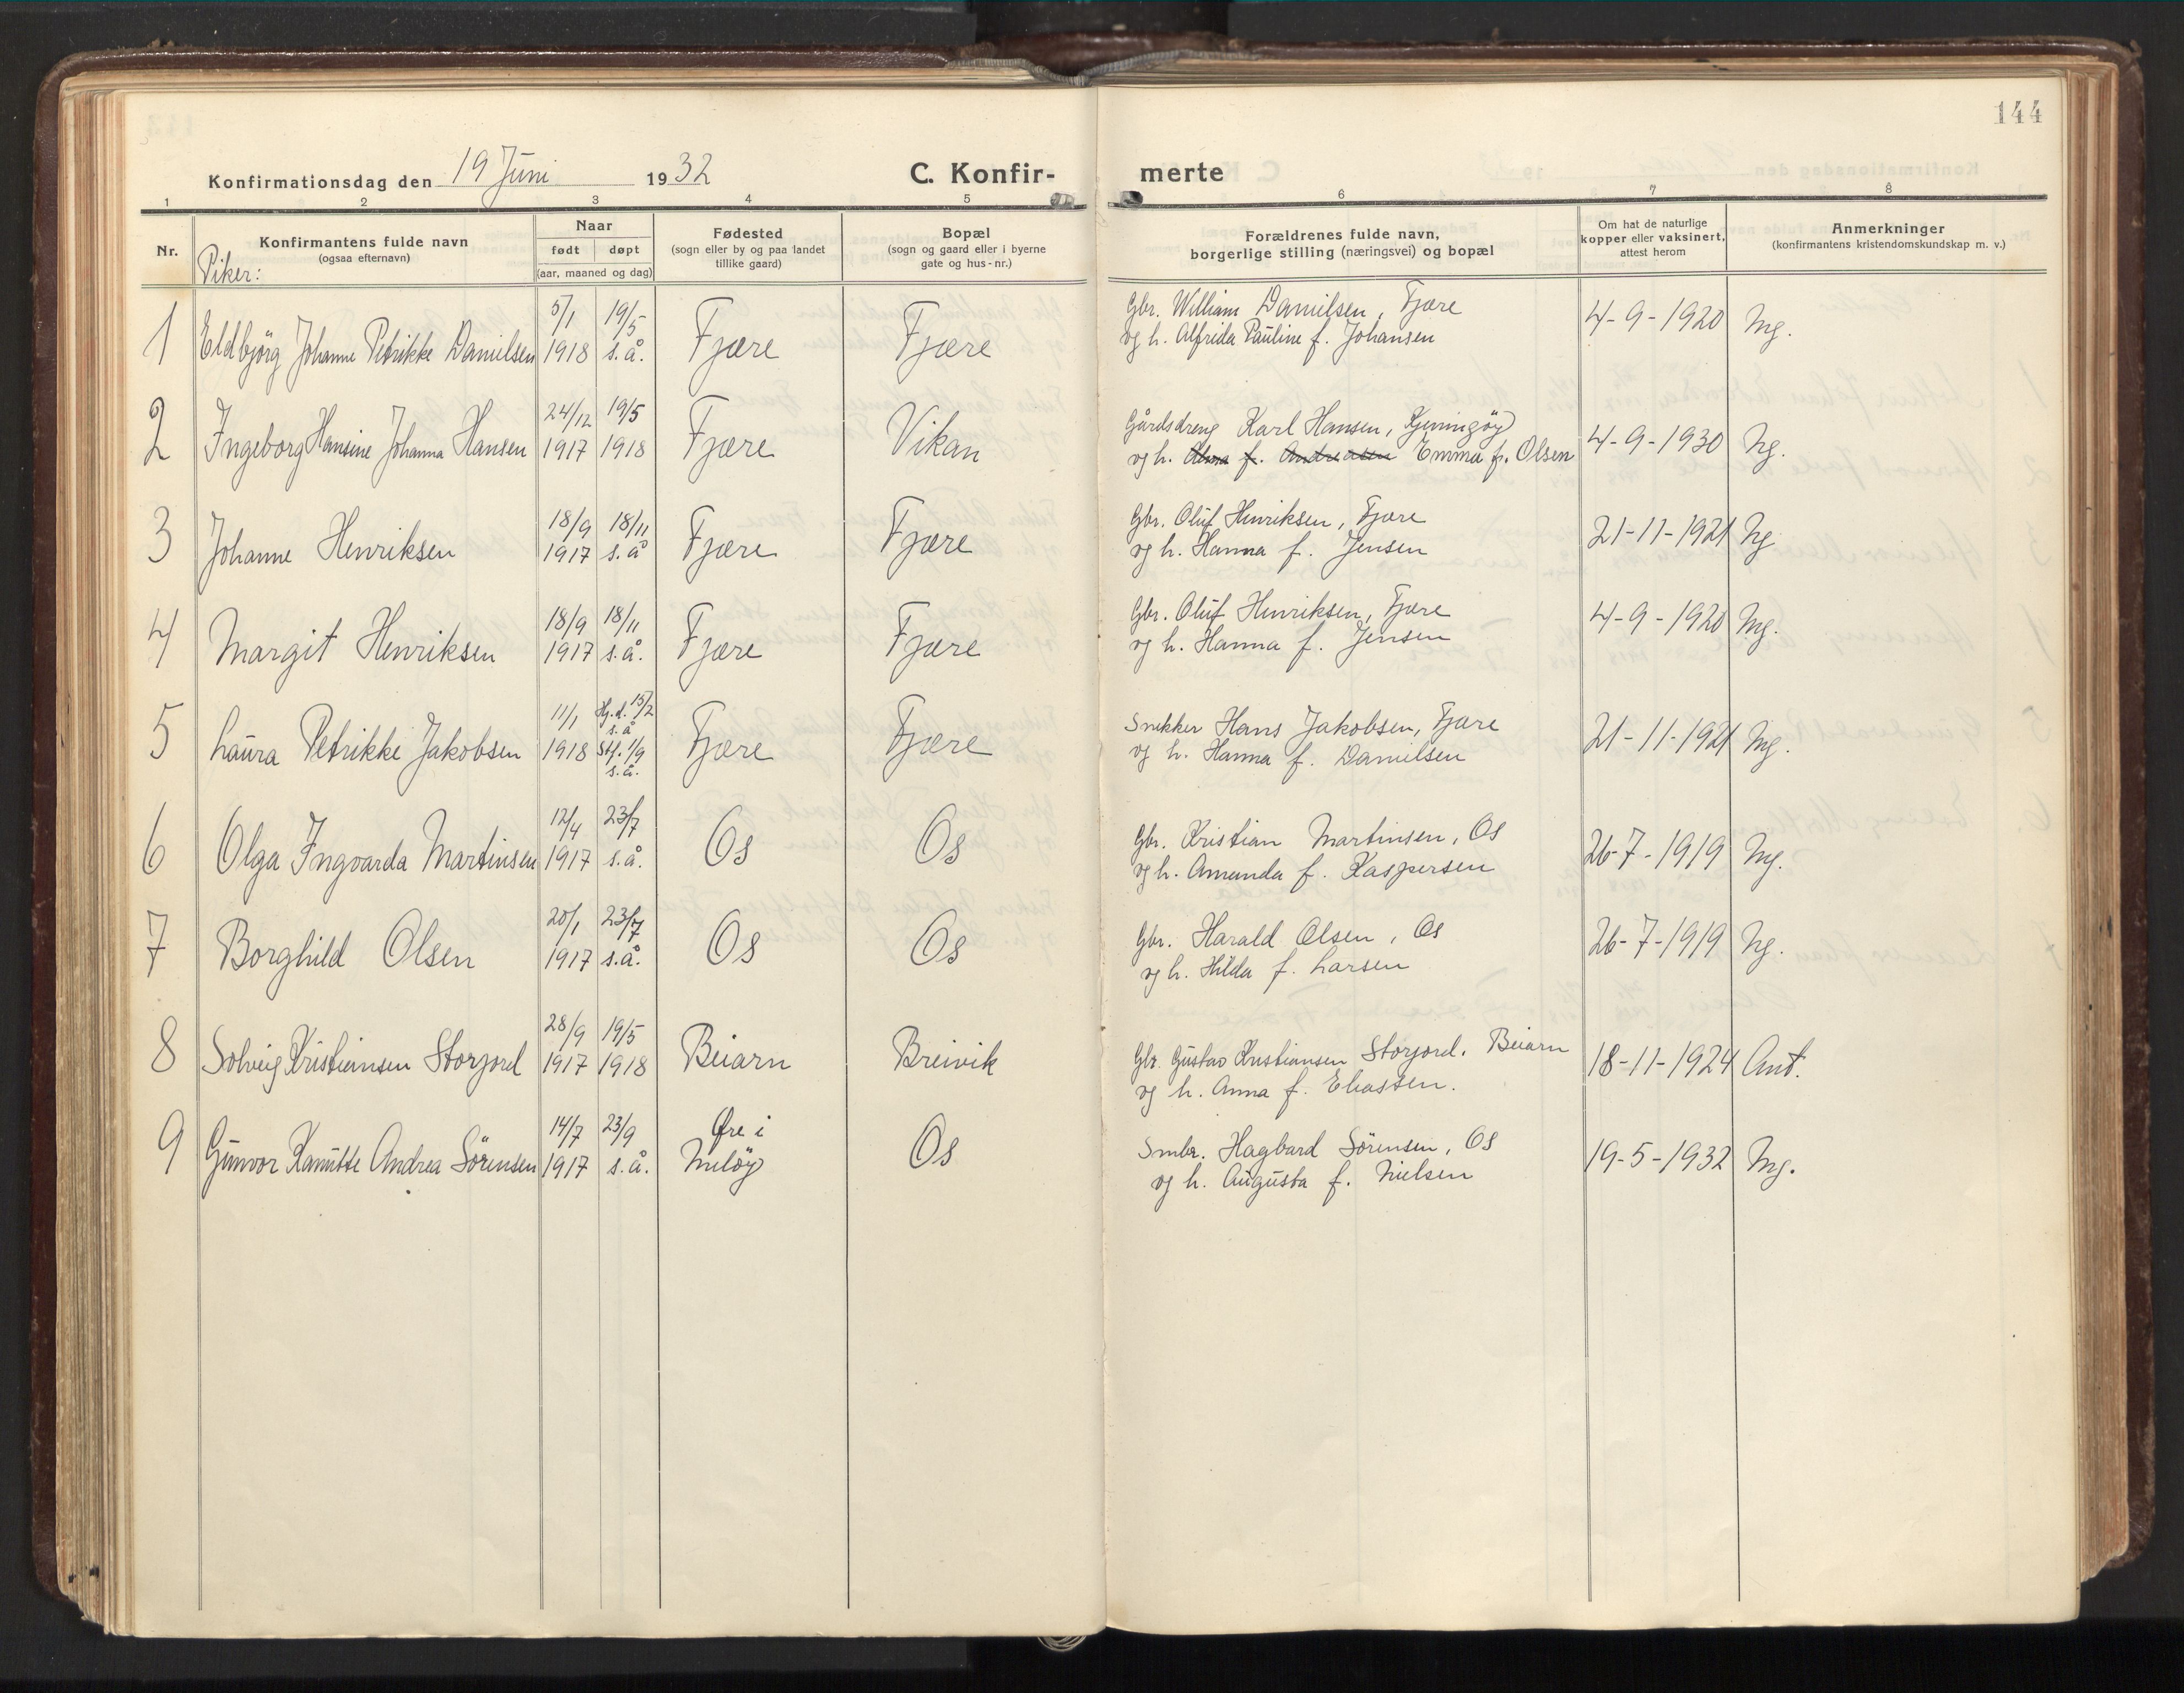 144
Konfirmationsdag den 19 Juni 1932
C. Konfir-
merte
1 2 3 4 5 6 7 8
Nr.
Konfirmantens fulde navn
(ogsaa efternavn)
Piker:
Naar
født døpt
(aar, maaned og dag)
Fødested
(sogn eller by og paa landet
tillike gaard)
Bopæl
(sogn og gaard eller i byerne
gate og hus-nr.)
Forældrenes fulde navn,
borgerlige stilling (næringsvei) og bopæl
Om hat de naturlige
kopper eller vaksinert,
attest herom
Anmerkninger
(konfirmantens kristendomskundskap m. v.)
5/1 19/5 Gbr. William Danielsen, Fjære
1 Eldbjörg Johanne Petrikke Danielsen 1918 s.å. Fjære Fjære og h. Alfrida Pauline f. Johansen 4-9-1920 Mg.
24/12 19/5 Gårdsdreng Karl Hansen, Kjerringöy
2 Ingeborg Hansine Johanna Hansen 1917 1918 Fjære Vikan og h. Alma f. Andreassen Emma f. Olsen 4-9-1930 Ng.
18/9 18/11 Gbr. Oluf Henriksen, Fjære
3 Johanne Henriksen 1917 s.å Fjære Fjære og h. Hanna f. Jensen 21-11-1921 Ng
18/9 18/11 Gbr. Oluf Henriksen, Fjære
4 Margit Henriksen 1917 s.å. Fjære Fjære og h. Hanna f. Jensen 4-9-1920 Mg.
11/1 Hj.d. 15/2 s.å Snekker Hans Jakobsen, Fjære
5 Laura Petrikke Jakobsen 1918 Stf. 1/9 s.å. Fjære Fjære og h. Hanna f. Danielsen 21-11-1921 Mg.
12/4 23/7 Gbr. Kristian Martinsen, Os
6 Olga Ingvarda Martinsen 1917 s.å. Os Os og h. Amanda f. Kaspersen 26-7-1919 Mg.
20/1 23/7 Gbr. Harald Olsen, Os
7 Borghild Olsen 1917 s.å. Os Os og h. Hilda f. Larsen 26-7-1919 Ng.
28/9 19/5 Gbr. Gustav Kristiansen Storjord. Beiarn
8 Solveig Kristiansen Storjord 1917 1918 Beiarn Breivik og h. Anna f. Eliassen. 18-11-1924 Ant.
14/7 23/9 Øre i Smbr. Hagbard Sörensen, Os
9 Gunvor Kanutte Andrea Sörensen 1917 s.å. Melöy Os og h. Augusta f. Nielsen 19-5-1932 Mg.